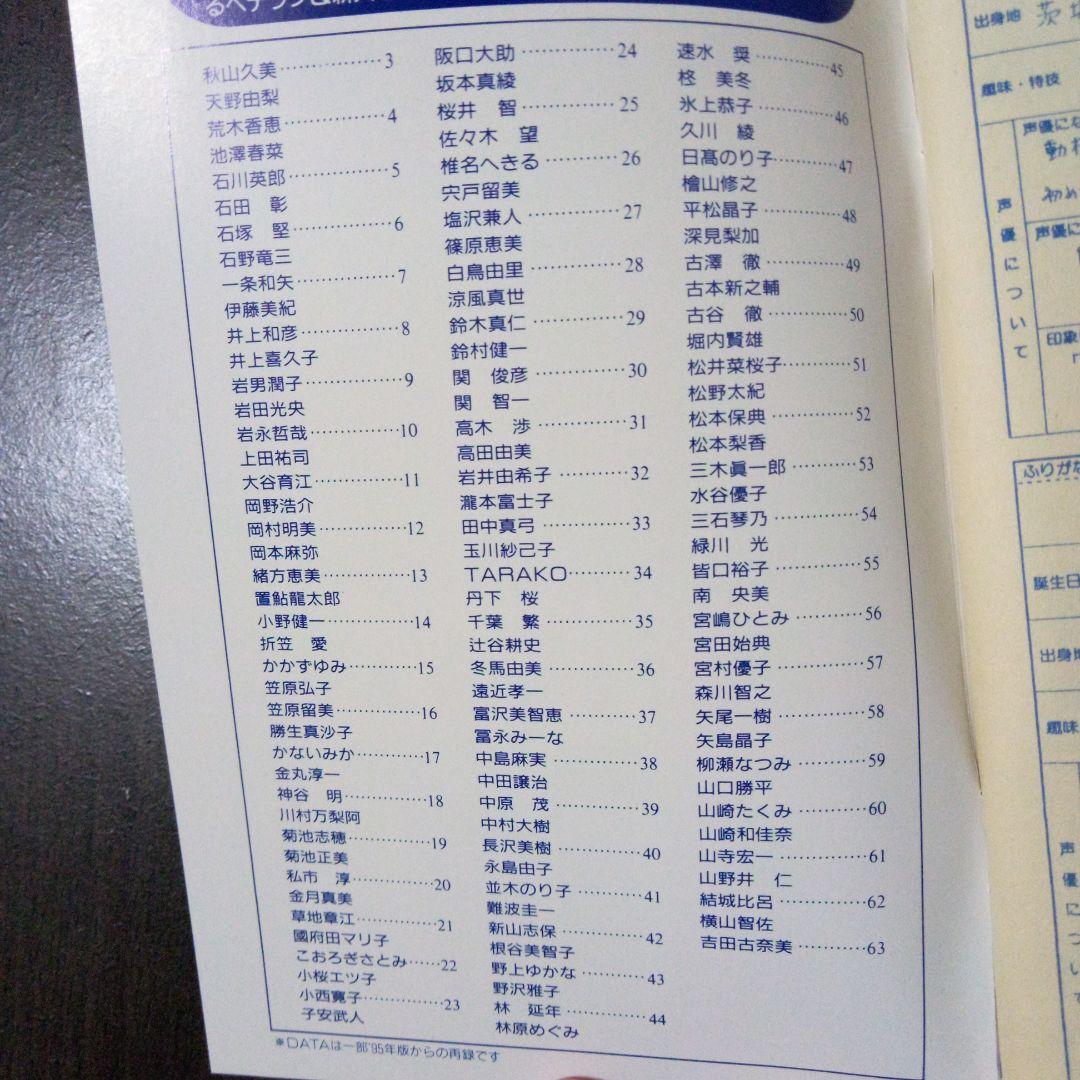 秋山久美……………3
天野由梨
荒木香恵……………4
池澤春菜
石川英郎……………5
石田　彰
石塚　堅……………6
石野竜三
一条和矢……………7
伊藤美紀
井上和彦……………8
井上喜久子
岩男潤子……………9
岩田光央
岩永哲哉……………10
上田祐司
大谷育江……………11
岡野浩介
岡村明美……………12
岡本麻弥
緒方恵美……………13
置鮎龍太郎
小野健一……………14
折笠　愛
かかずゆみ…………15
笠原弘子
笠原留美……………16
勝生真沙子
かないみか…………17
金丸淳一
神谷　明……………18
川村万梨阿
菊池志穂……………19
菊池正美
私市　淳……………20
金月真美
草地章江……………21
國府田マリ子
こおろぎさとみ……22
小桜エツ子
小西寛子……………23
子安武人
阪口大助……………24
坂本真綾
桜井　智……………25
佐々木　望
椎名へきる…………26
宍戸留美
塩沢兼人……………27
篠原恵美
白鳥由里……………28
涼風真世
鈴木真仁……………29
鈴村健一
関　俊彦……………30
関　智一
高木　渉……………31
高田由美
岩井由希子…………32
瀧本富士子
田中真弓……………33
玉川紗己子
TARAKO…………34
丹下　桜
千葉　繁……………35
辻谷耕史
冬馬由美……………36
遠近孝一
富沢美智恵…………37
冨永みーな
中島麻実……………38
中田譲治
中原　茂……………39
中村大樹
長沢美樹……………40
永島由子
並木のり子…………41
難波圭一
新山志保……………42
根谷美智子
野上ゆかな…………43
野沢雅子
林　延年……………44
林原めぐみ
速水　奨……………45
柊　美冬
氷上恭子……………46
久川　綾
日髙のり子…………47
檜山修之
平松晶子……………48
深見梨加
古澤　徹……………49
古本新之輔
古谷　徹……………50
堀内賢雄
松井菜桜子…………51
松野太紀
松本保典……………52
松本梨香
三木眞一郎…………53
水谷優子
三石琴乃……………54
緑川　光
皆口裕子……………55
南　央美
宮嶋ひとみ…………56
宮田始典
宮村優子……………57
森川智之
矢尾一樹……………58
矢島晶子
柳瀬なつみ…………59
山口勝平
山崎たくみ…………60
山崎和佳奈
山寺宏一……………61
山野井　仁
結城比呂……………62
横山智佐
吉田古奈美…………63
※DATAは一部'95年版からの再録です
出身地
趣味・特技
声優について
声優にな
初め
声優に
印象
ふりがな
誕生日
出身地
趣味
声優につい